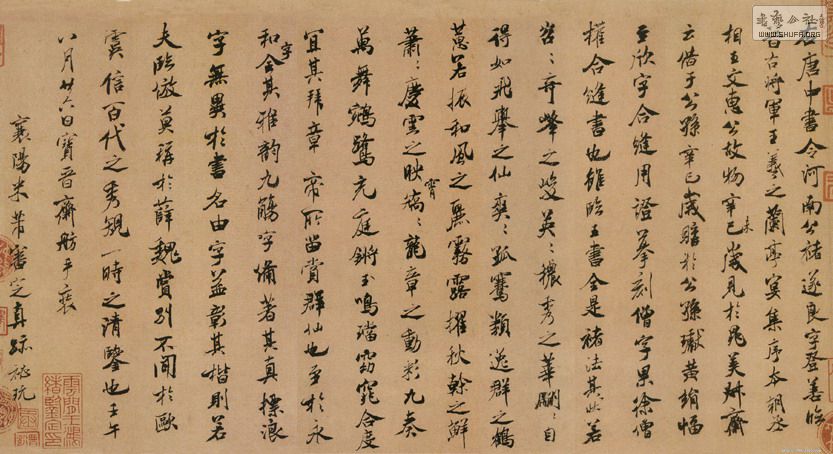 右唐中書令河南公褚遂良字登善臨
晉右將軍王羲之蘭亭宴集序本朝丞
相王文惠公故物辛未歲見於晁美叔齋
云借于公孫辛巳歲購於公孫瓛黃絹幅
至欣字合縫用證摹刻僧字果徐僧
權合縫書也雖臨王書全是褚法其狀若
岧岧奇峰之峻英英穠秀之華翩翩自
得如飛舉之仙爽爽孤騫類逸群之鶴
蕙若振和風之麗霧露擢秋幹之鮮
蕭蕭慶雲之映霄矯矯龍章之動彩九奏
萬舞鵷鷺充庭鏘玉鳴璫窈窕合度
宜其拜章帝所留賞群仙也至於永
和字全其雅韵九觴字備著其真標浪
字無異於書名由字益彰其楷則若
夫臨倣莫稱於薛魏賞別不聞於歐
虞信百代之秀規一時之清鑒也壬午
八月廿六日寶晉齋舫手裝
襄陽米芾審定真跡祕玩
書藝公社
WWW.SHUFA.ORG